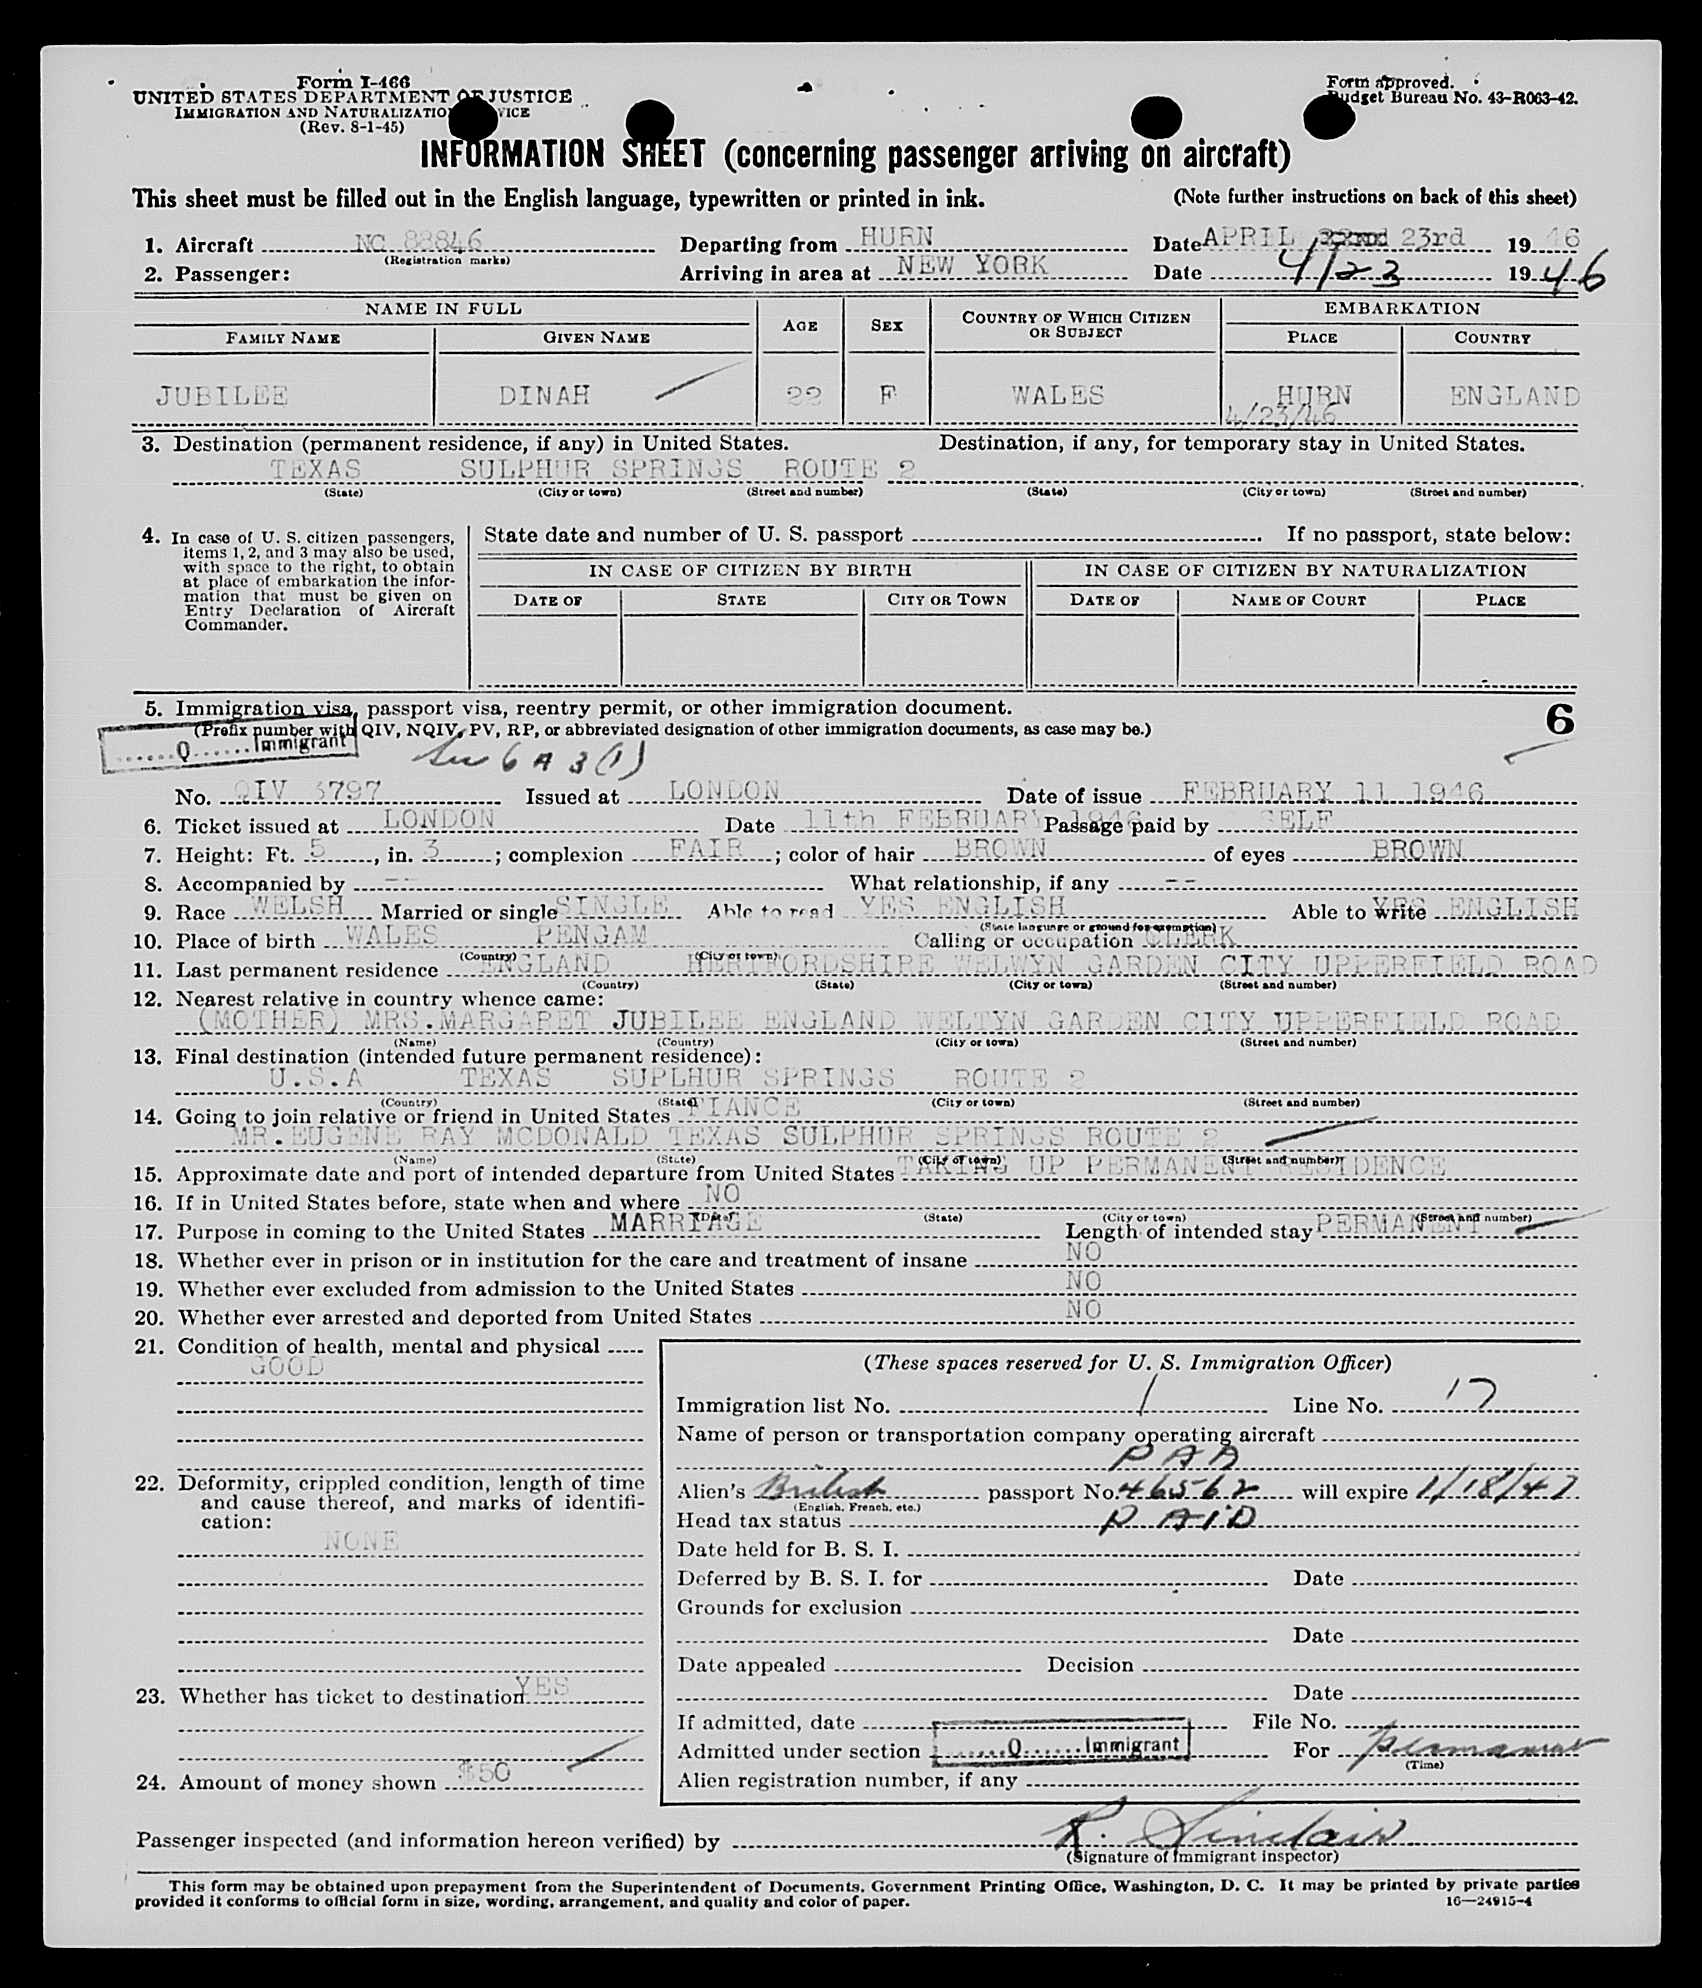 Form I-466
UNITED STATES DEPARTMENT OF JUSTICE
IMMIGRATION AND NATURALIZATION SERVICE
(Rev. 8-1-45)
Form approved.
Budget Bureau No. 43-R063-42.
INFORMATION SHEET (concerning passenger arriving on aircraft)
This sheet must be filled out in the English language, typewritten or printed in ink. (Note further instructions on back of this sheet)
1. Aircraft NC 88846 Departing from HURN Date APRIL 22nd 23rd 1946
(Registration marks)
2. Passenger: Arriving in area at NEW YORK Date 4/23 1946
NAME IN FULL AGE SEX COUNTRY OF WHICH CITIZEN OR SUBJECT EMBARKATION
FAMILY NAME GIVEN NAME PLACE COUNTRY
JUBILEE DINAH 22 F WALES HURN ENGLAND
4/23/46
3. Destination (permanent residence, if any) in United States. Destination, if any, for temporary stay in United States.
TEXAS SULPHUR SPRINGS ROUTE 2
(State) (City or town) (Street and number) (State) (City or town) (Street and number)
4. In case of U. S. citizen passengers, items 1, 2, and 3 may also be used, with space to the right, to obtain at place of embarkation the information that must be given on Entry Declaration of Aircraft Commander.
State date and number of U. S. passport If no passport, state below:
IN CASE OF CITIZEN BY BIRTH IN CASE OF CITIZEN BY NATURALIZATION
DATE OF STATE CITY OR TOWN DATE OF NAME OF COURT PLACE
5. Immigration visa, passport visa, reentry permit, or other immigration document. 6
(Prefix number with QIV, NQIV, PV, RP, or abbreviated designation of other immigration documents, as case may be.)
Q Immigrant
Sec 6 A 3 (1)
No. QIV 3797 Issued at LONDON Date of issue FEBRUARY 11 1946
6. Ticket issued at LONDON Date 11th FEBRUARY 1946 Passage paid by SELF
7. Height: Ft. 5, in. 3; complexion FAIR; color of hair BROWN of eyes BROWN
8. Accompanied by -- What relationship, if any --
9. Race WELSH Married or single SINGLE Able to read YES ENGLISH Able to write YES ENGLISH
(State language or ground for exemption)
10. Place of birth WALES PENGAM Calling or occupation CLERK
(Country) (City or town)
11. Last permanent residence ENGLAND HERTFORDSHIRE WELWYN GARDEN CITY UPPERFIELD ROAD
(Country) (State) (City or town) (Street and number)
12. Nearest relative in country whence came:
(MOTHER) MRS.MARGARET JUBILEE ENGLAND WELTYN GARDEN CITY UPPERFIELD ROAD
(Name) (Country) (City or town) (Street and number)
13. Final destination (intended future permanent residence):
U.S.A TEXAS SUPLHUR SPRINGS ROUTE 2
(Country) (State) (City or town) (Street and number)
14. Going to join relative or friend in United States FIANCE
MR.EUGENE RAY MCDONALD TEXAS SULPHUR SPRINGS ROUTE 2
(Name) (State) (City or town) (Street and number)
15. Approximate date and port of intended departure from United States TAKING UP PERMANENT RESIDENCE
16. If in United States before, state when and where NO
(Date) (State) (City or town) (Street and number)
17. Purpose in coming to the United States MARRIAGE Length of intended stay PERMANENT
18. Whether ever in prison or in institution for the care and treatment of insane NO
19. Whether ever excluded from admission to the United States NO
20. Whether ever arrested and deported from United States NO
21. Condition of health, mental and physical
GOOD
22. Deformity, crippled condition, length of time and cause thereof, and marks of identification:
NONE
23. Whether has ticket to destination YES
24. Amount of money shown $50
(These spaces reserved for U. S. Immigration Officer)
Immigration list No. 1 Line No. 17
Name of person or transportation company operating aircraft
PAA
Alien's British passport No. 46562 will expire 1/18/47
(English, French, etc.)
Head tax status PAID
Date held for B. S. I.
Deferred by B. S. I. for Date
Grounds for exclusion
Date
Date appealed Decision
Date
If admitted, date File No.
Admitted under section Q Immigrant For Permanent
(Time)
Alien registration number, if any
Passenger inspected (and information hereon verified) by R. Sinclair
(Signature of Immigrant inspector)
This form may be obtained upon prepayment from the Superintendent of Documents, Government Printing Office, Washington, D. C. It may be printed by private parties
provided it conforms to official form in size, wording, arrangement, and quality and color of paper. 16—24915-4